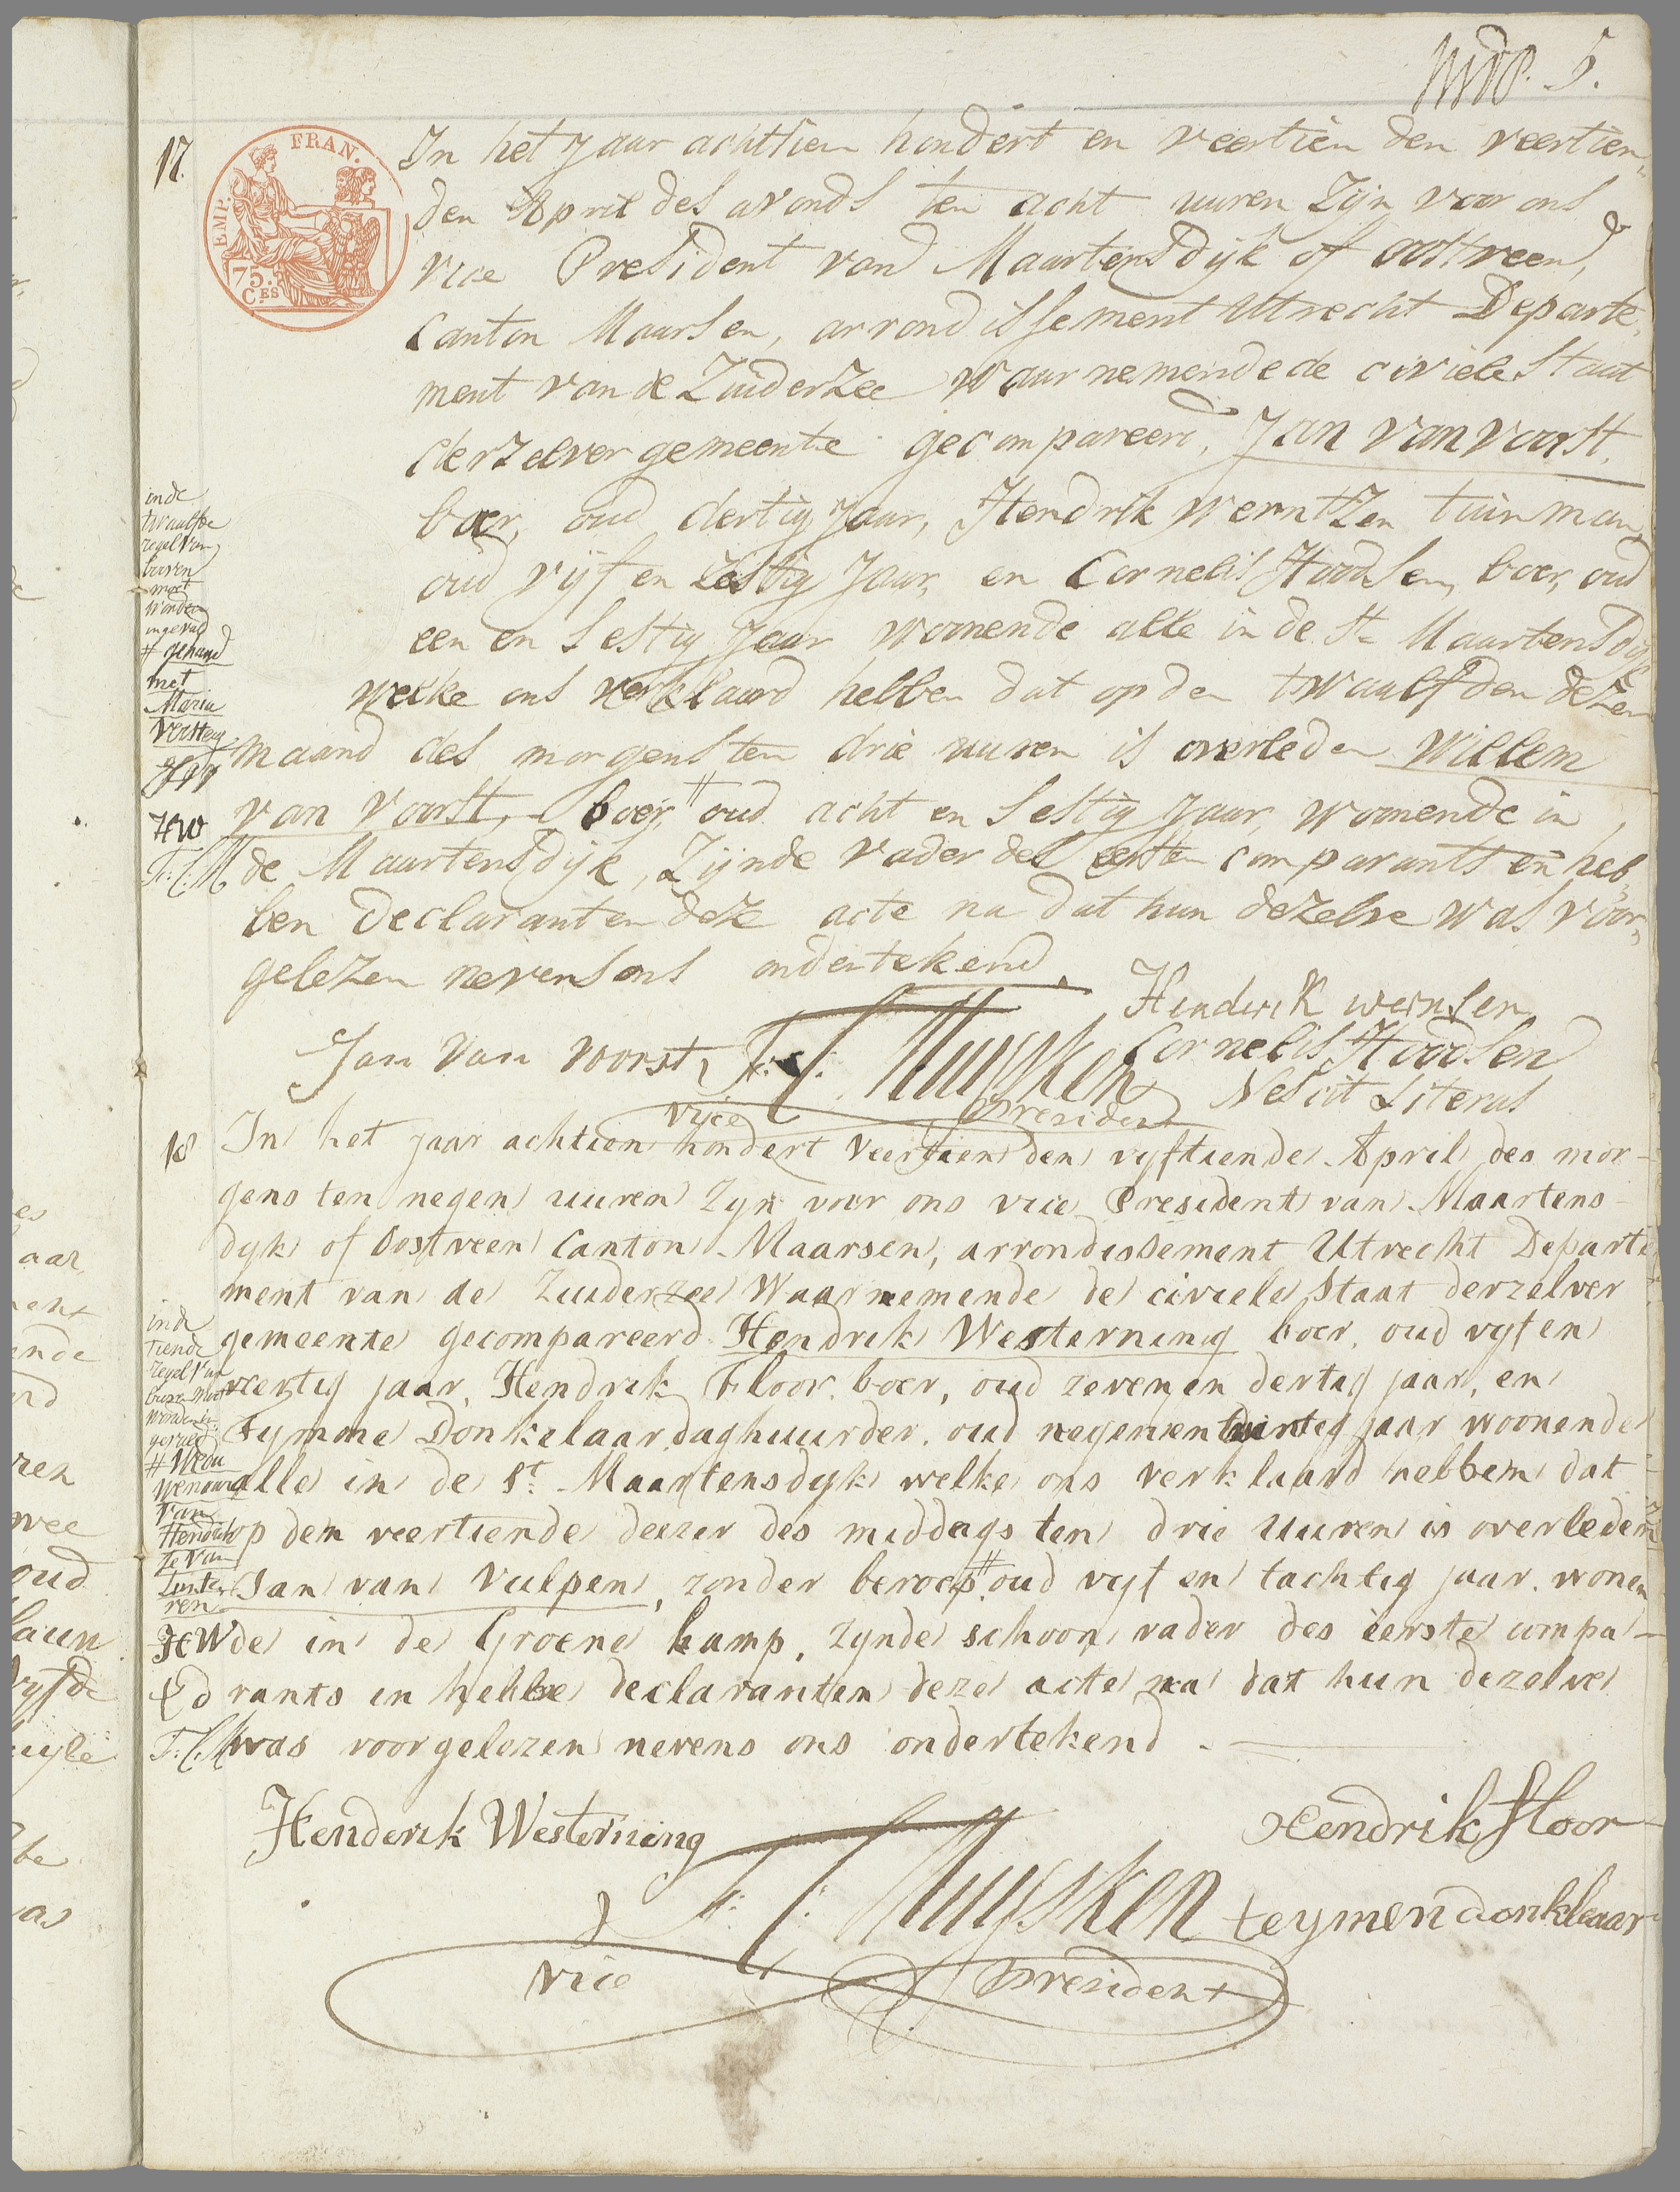 5.
17.
EMP. FRAN.
75.
C.ES
In het Jaar achttien hondert en veertien den veertien„
den April des avonds ten acht uuren Zijn voor ons
vice President vand Maartensdijk of oostveen,
Canton Maarsen, arrondissement Utrecht Departe„
ment van de Zuiderzee Waarnemende de civiele Staat
derzelver gemeente gecompareerd, Jan van voorst,
boer, oud dertig Jaar, Hendrik werntzen tuinman
oud vijf en Zestig Jaar, en Cornelis Hoodsen, boer, oud
een en Sestig Jaar woonende alle in de St. Maartensdijk
welke ons verklaard hebben dat op den twaalfden dezer
maand des morgens ten drie uuren is overleden Willem
van Voorst, boer, # oud acht en Sestig Jaar, woonende in
de Maartensdijk, Zijnde vader des eersten comparants en heb„
ben declaranten deze acte na dat hun dezelve was voor„
gelezen nevens ons ondertekend.
in de
twaalfde
regel van
boven
moet
worden
ingevuld
# gehuwd
met
Maria
Versteeg
JVV
HW
T. C. M
Henderik wernsen
Jan Van voorst
Cornelis Hoodsen
Nescit Literas
T. C. Muysken
vice President
18
In het jaar achtien hondert veertien den vyftiende April des mor-
gens ten negen uuren Zyn voor ons vice President van Maartens-
dyk of Oostveen Canton Maarsen, arrondissement Utrecht Departe
ment van de Zuiderzee Waarnemende de civiele Staat derzelver
gemeente gecompareerd Hendrik Westerning boer, oud vyf en
veertig jaar, Hendrik Floor, boer, oud zeven en dertig jaar, en
Tymme Donkelaar daghuurder, oud negen en twintig jaar woonende
alle in de St. Maartensdyk welke ons verklaard hebben dat
op den veertiende dezer des middags ten drie Uuren is overleden
Jan van Vulpen, zonder beroep, # oud vyf en tachtig jaar, wonen
de in de Groene kamp, zynde schoon vader des eerste compa-
rants en hebbe declaranten deze acte na dat hun dezelve
was voorgelezen nevens ons ondertekend.
in de
tiende
regel van
boven moet
worden in
gevuld
# Wedu
wenaar
van
Hendrik
je van
Lunte
ren
HW
T. C. M
Henderik Westerning
Hendrik floor
T. C. Muysken
teymen donkleaar
Vice President